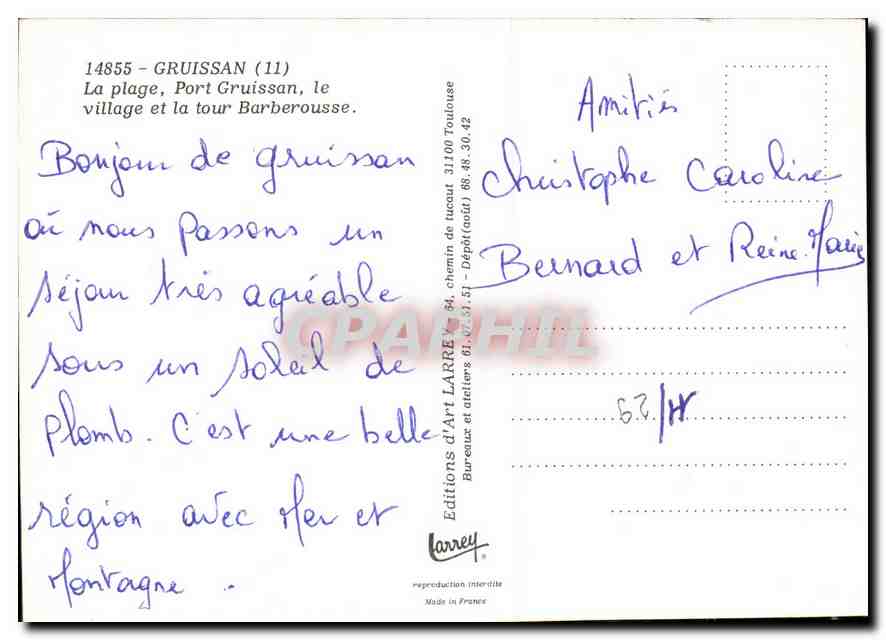 14855 - GRUISSAN (11)
La plage, Port Gruissan, le
village et la tour Barberousse.
Bonjour de Gruissan
où nous passons un
séjour très agréable
sous un soleil de
plomb. C'est une belle
région avec Mer et
Montagne.
Amitiés
Christophe Caroline
Bernard et Reine-Marie
Editions d'Art LARREY - 64, chemin de tucaut 31100 Toulouse
Bureaux et ateliers 61.07.51.51 - Dépôt(août) 68.48.30.42
CPAPHIL
Larrey
reproduction interdite
Made in France